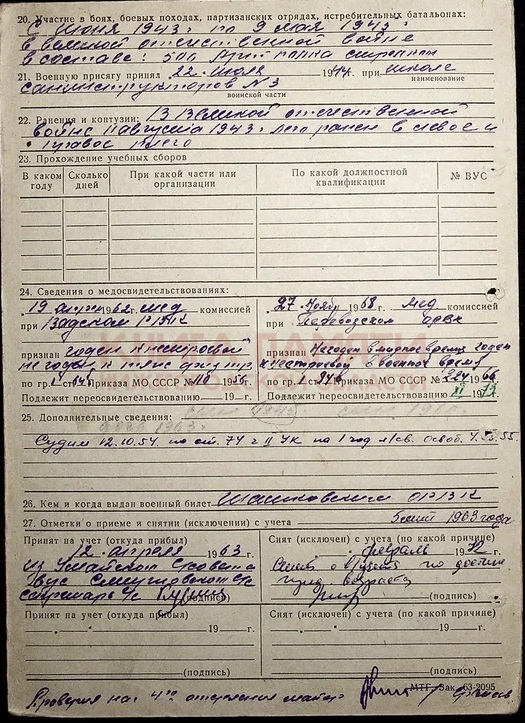 20. Участие в боях, боевых походах, партизанских отрядах, истребительных батальонах:
С июня 1943г по 9 мая 1943г
в великой отечественной войне
в составе: 500 арт полка
21. Военную присягу принял 22 июля 1944г. при школе
наименование
санинструкторов № 3
воинской части
22. Ранения и контузии: В Великой отечественной
войне 11 августа 1943г. легко ранен в левое и
правое плечо
23. Прохождение учебных сборов
В каком году
Сколько дней
При какой части или организации
По какой должностной квалификации
№ ВУС
24. Сведения о медосвидетельствованиях:
19 апреля 1962г. мед комиссией
при Вадском РВК
признан годен к нестроевой
по гр. 1 ст 64 Приказа МО СССР № 110 1956г.
Подлежит переосвидетельствованию 19 г.
27 Ноябр 1968г. Мед. комиссией
при Перевозском ОРВК
признан Негоден в мирное время годен
к нестроевой в военное время
по гр. 1 Приказа МО СССР № 324 1966
Подлежит переосвидетельствованию 1973г.
25. Дополнительные сведения:
Судим 12.10.54. по ст. 74 ч II УК на 1 год л/св. Освоб. 4.55.
26. Кем и когда выдан военный билет
5 мая 1963 года
27. Отметки о приеме и снятии (исключении) с учета
Принят на учет (откуда прибыл)
12 апреля 1963 г.
из
ВУС с/с
секретарь с/с (подпись)
Снят (исключен) с учета (по какой причине)
февраль 1972 г.
Снят с учета по достиже
нию возраста
(подпись)
Принят на учет (откуда прибыл)
19 г.
(подпись)
Снят (исключен) с учета (по какой причине)
19 г.
(подпись)
МТГ Зак. 63-2095
Проверил нач. 4го отделения майор